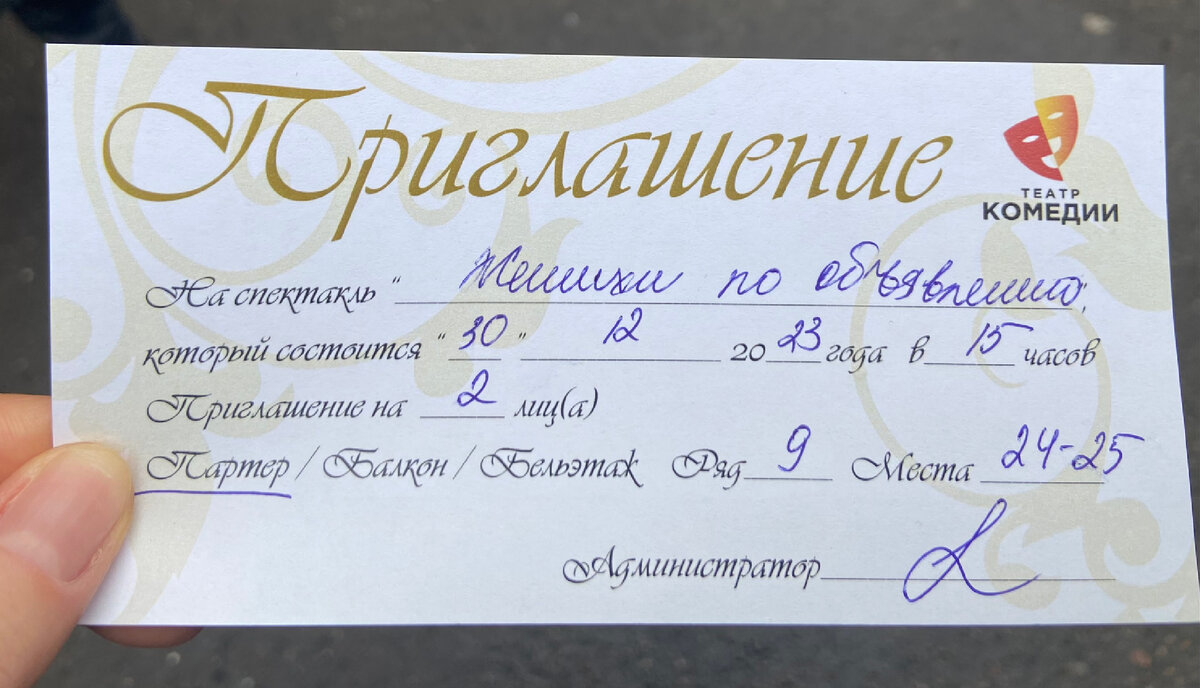 Приглашение
ТЕАТР
КОМЕДИИ
На спектакль "Женихи по объявлению",
который состоится "30" 12 2023 года в 15 часов
Приглашение на 2 лиц(а)
Партер / Балкон / Бельэтаж Ряд 9 Места 24-25
Администратор